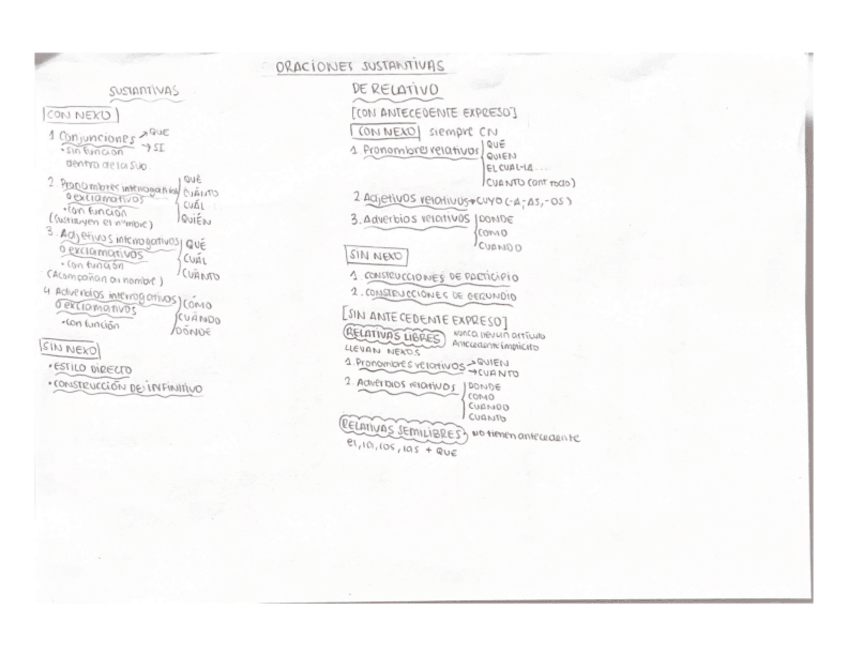 ORACIONES SUSTANTIVAS
SUSTANTIVAS
CON NEXO
1 Conjunciones → QUE
→ SI
• sin función
dentro de la sub
2. Pronombres interrogativos
o exclamativos
• con función
(sustituyen el nombre)
QUÉ
CUÁNTO
CUÁL
QUIÉN
3. Adjetivos interrogativos
o exclamativos
• con función
(Acompañan a un nombre)
QUÉ
CUÁL
CUÁNTO
4 Adverbios interrogativos
o exclamativos
• con función
CÓMO
CUÁNDO
DÓNDE
SIN NEXO
• ESTILO DIRECTO
• CONSTRUCCIÓN DE INFINITIVO
DE RELATIVO
[CON ANTECEDENTE EXPRESO]
CON NEXO siempre CN
1. Pronombres relativos
QUE
QUIEN
EL CUAL-LA...
CUANTO (ant todo)
2. Adjetivos relativos → CUYO (-A; AS, -OS)
3. Adverbios relativos
DONDE
COMO
CUANDO
SIN NEXO
1. CONSTRUCCIONES DE PARTICIPIO
2. CONSTRUCCIONES DE GERUNDIO
[SIN ANTECEDENTE EXPRESO]
RELATIVAS LIBRES nunca llevan artículo
Antecedente implícito
LLEVAN NEXOS
1. Pronombres relativos → QUIEN
→ CUANTO
2. Adverbios relativos
DONDE
COMO
CUANDO
CUANTO
RELATIVAS SEMILIBRES → NO tienen antecedente
el, la, los, las + QUE